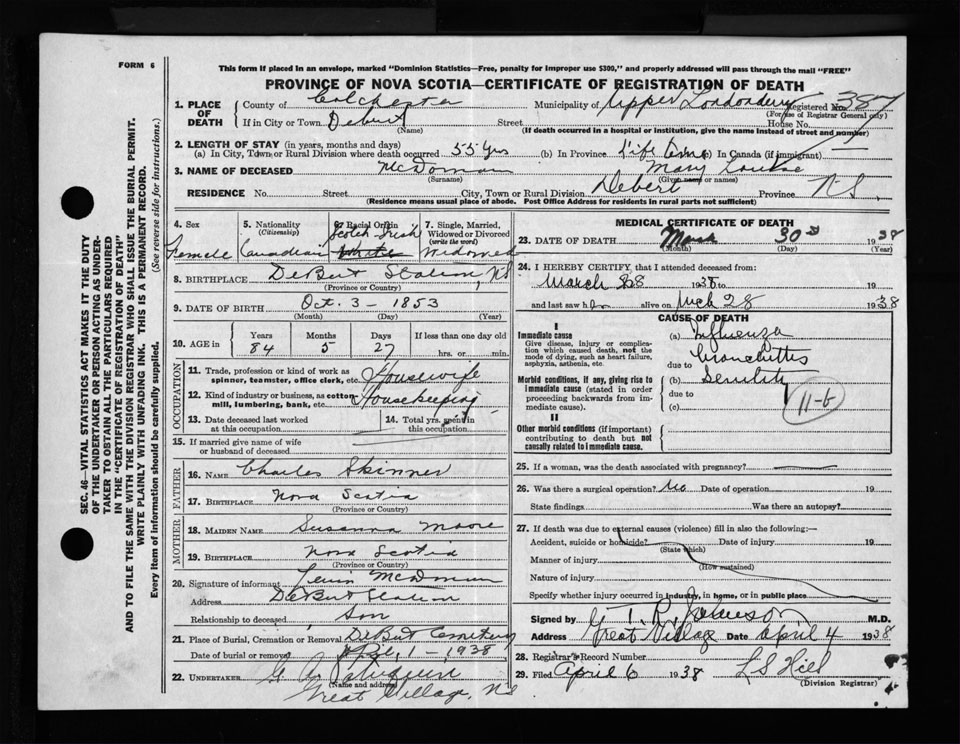 FORM 6
This form if placed in an envelope, marked "Dominion Statistics—Free, penalty for improper use $300," and properly addressed will pass through the mail "FREE"
PROVINCE OF NOVA SCOTIA—CERTIFICATE OF REGISTRATION OF DEATH
1. PLACE OF DEATH County of Colchester Municipality of Upper Londonderry Registered No. 387
(For use of Registrar General only)
If in City or Town Debert Street House No.
(Name) (If death occurred in a hospital or institution, give the name instead of street and number)
2. LENGTH OF STAY (in years, months and days)
(a) In City, Town or Rural Division where death occurred 55 yrs (b) In Province Life time (c) In Canada (if immigrant) —
3. NAME OF DECEASED McDorman Mary Louise
(Surname) (Given name or names)
RESIDENCE No. Street City, Town or Rural Division Debert Province N-S.
(Residence means usual place of abode. Post Office Address for residents in rural parts not sufficient)
4. Sex Female
5. Nationality (Citizenship) Canadian
6. Racial Origin Scotch Irish White
7. Single, Married, Widowed or Divorced (write the word) Widowed
8. BIRTHPLACE DeBert Station, N.S
(Province or Country)
9. DATE OF BIRTH Oct. 3 - 1853
(Month) (Day) (Year)
10. AGE in Years 84 Months 5 Days 27 If less than one day old hrs. or min.
OCCUPATION
11. Trade, profession or kind of work as spinner, teamster, office clerk, etc. Housewife
12. Kind of industry or business, as cotton mill, lumbering, bank, etc. Housekeeping
13. Date deceased last worked at this occupation
14. Total yrs. spent in this occupation
15. If married give name of wife or husband of deceased
FATHER
16. NAME Charles Skinner
17. BIRTHPLACE Nova Scotia
(Province or Country)
MOTHER
18. MAIDEN NAME Susanna Moore
19. BIRTHPLACE Nova Scotia
(Province or Country)
20. Signature of informant McDorman
Address DeBert Station
Relationship to deceased Son
21. Place of Burial, Cremation or Removal DeBert Cemetery
Date of burial or removal Apl, 1 - 1938
22. UNDERTAKER G.
(Name and address)
Great Village, N.S
MEDICAL CERTIFICATE OF DEATH
23. DATE OF DEATH March 30 1938
(Month) (Day)
24. I HEREBY CERTIFY, that I attended deceased from:
March 28 1938 to 19
and last saw her alive on Mch 28 1938
CAUSE OF DEATH
I
Immediate cause
Give disease, injury or complication which caused death, not the mode of dying, such as heart failure, asphyxia, asthenia, etc.
(a) Influenza
Bronchitis
due to
Morbid conditions, if any, giving rise to immediate cause (stated in order proceeding backwards from immediate cause).
(b) Senility
due to
(c)
11-b
II
Other morbid conditions (if important) contributing to death but not causally related to immediate cause.
25. If a woman, was the death associated with pregnancy?
26. Was there a surgical operation? No Date of operation 19
State findings Was there an autopsy?
27. If death was due to external causes (violence) fill in also the following:—
Accident, suicide or homicide? Date of injury 19
(State which)
Manner of injury
(How sustained)
Nature of injury
Specify whether injury occurred in industry, in home, or in public place
Signed by T. R. Johnson M.D.
Address Great Village Date April 4 1938
28. Registrar's Record Number
29. Filed April 6 1938 L S Hill
(Division Registrar)
SEC. 46—VITAL STATISTICS ACT MAKES IT THE DUTY
OF THE UNDERTAKER OR PERSON ACTING AS UNDERTAKER TO OBTAIN ALL THE PARTICULARS REQUIRED
IN THE "CERTIFICATE OF REGISTRATION OF DEATH"
AND TO FILE THE SAME WITH THE DIVISION REGISTRAR WHO SHALL ISSUE THE BURIAL PERMIT.
WRITE PLAINLY WITH UNFADING INK. THIS IS A PERMANENT RECORD.
Every item of information should be carefully supplied. (See reverse side for instructions.)